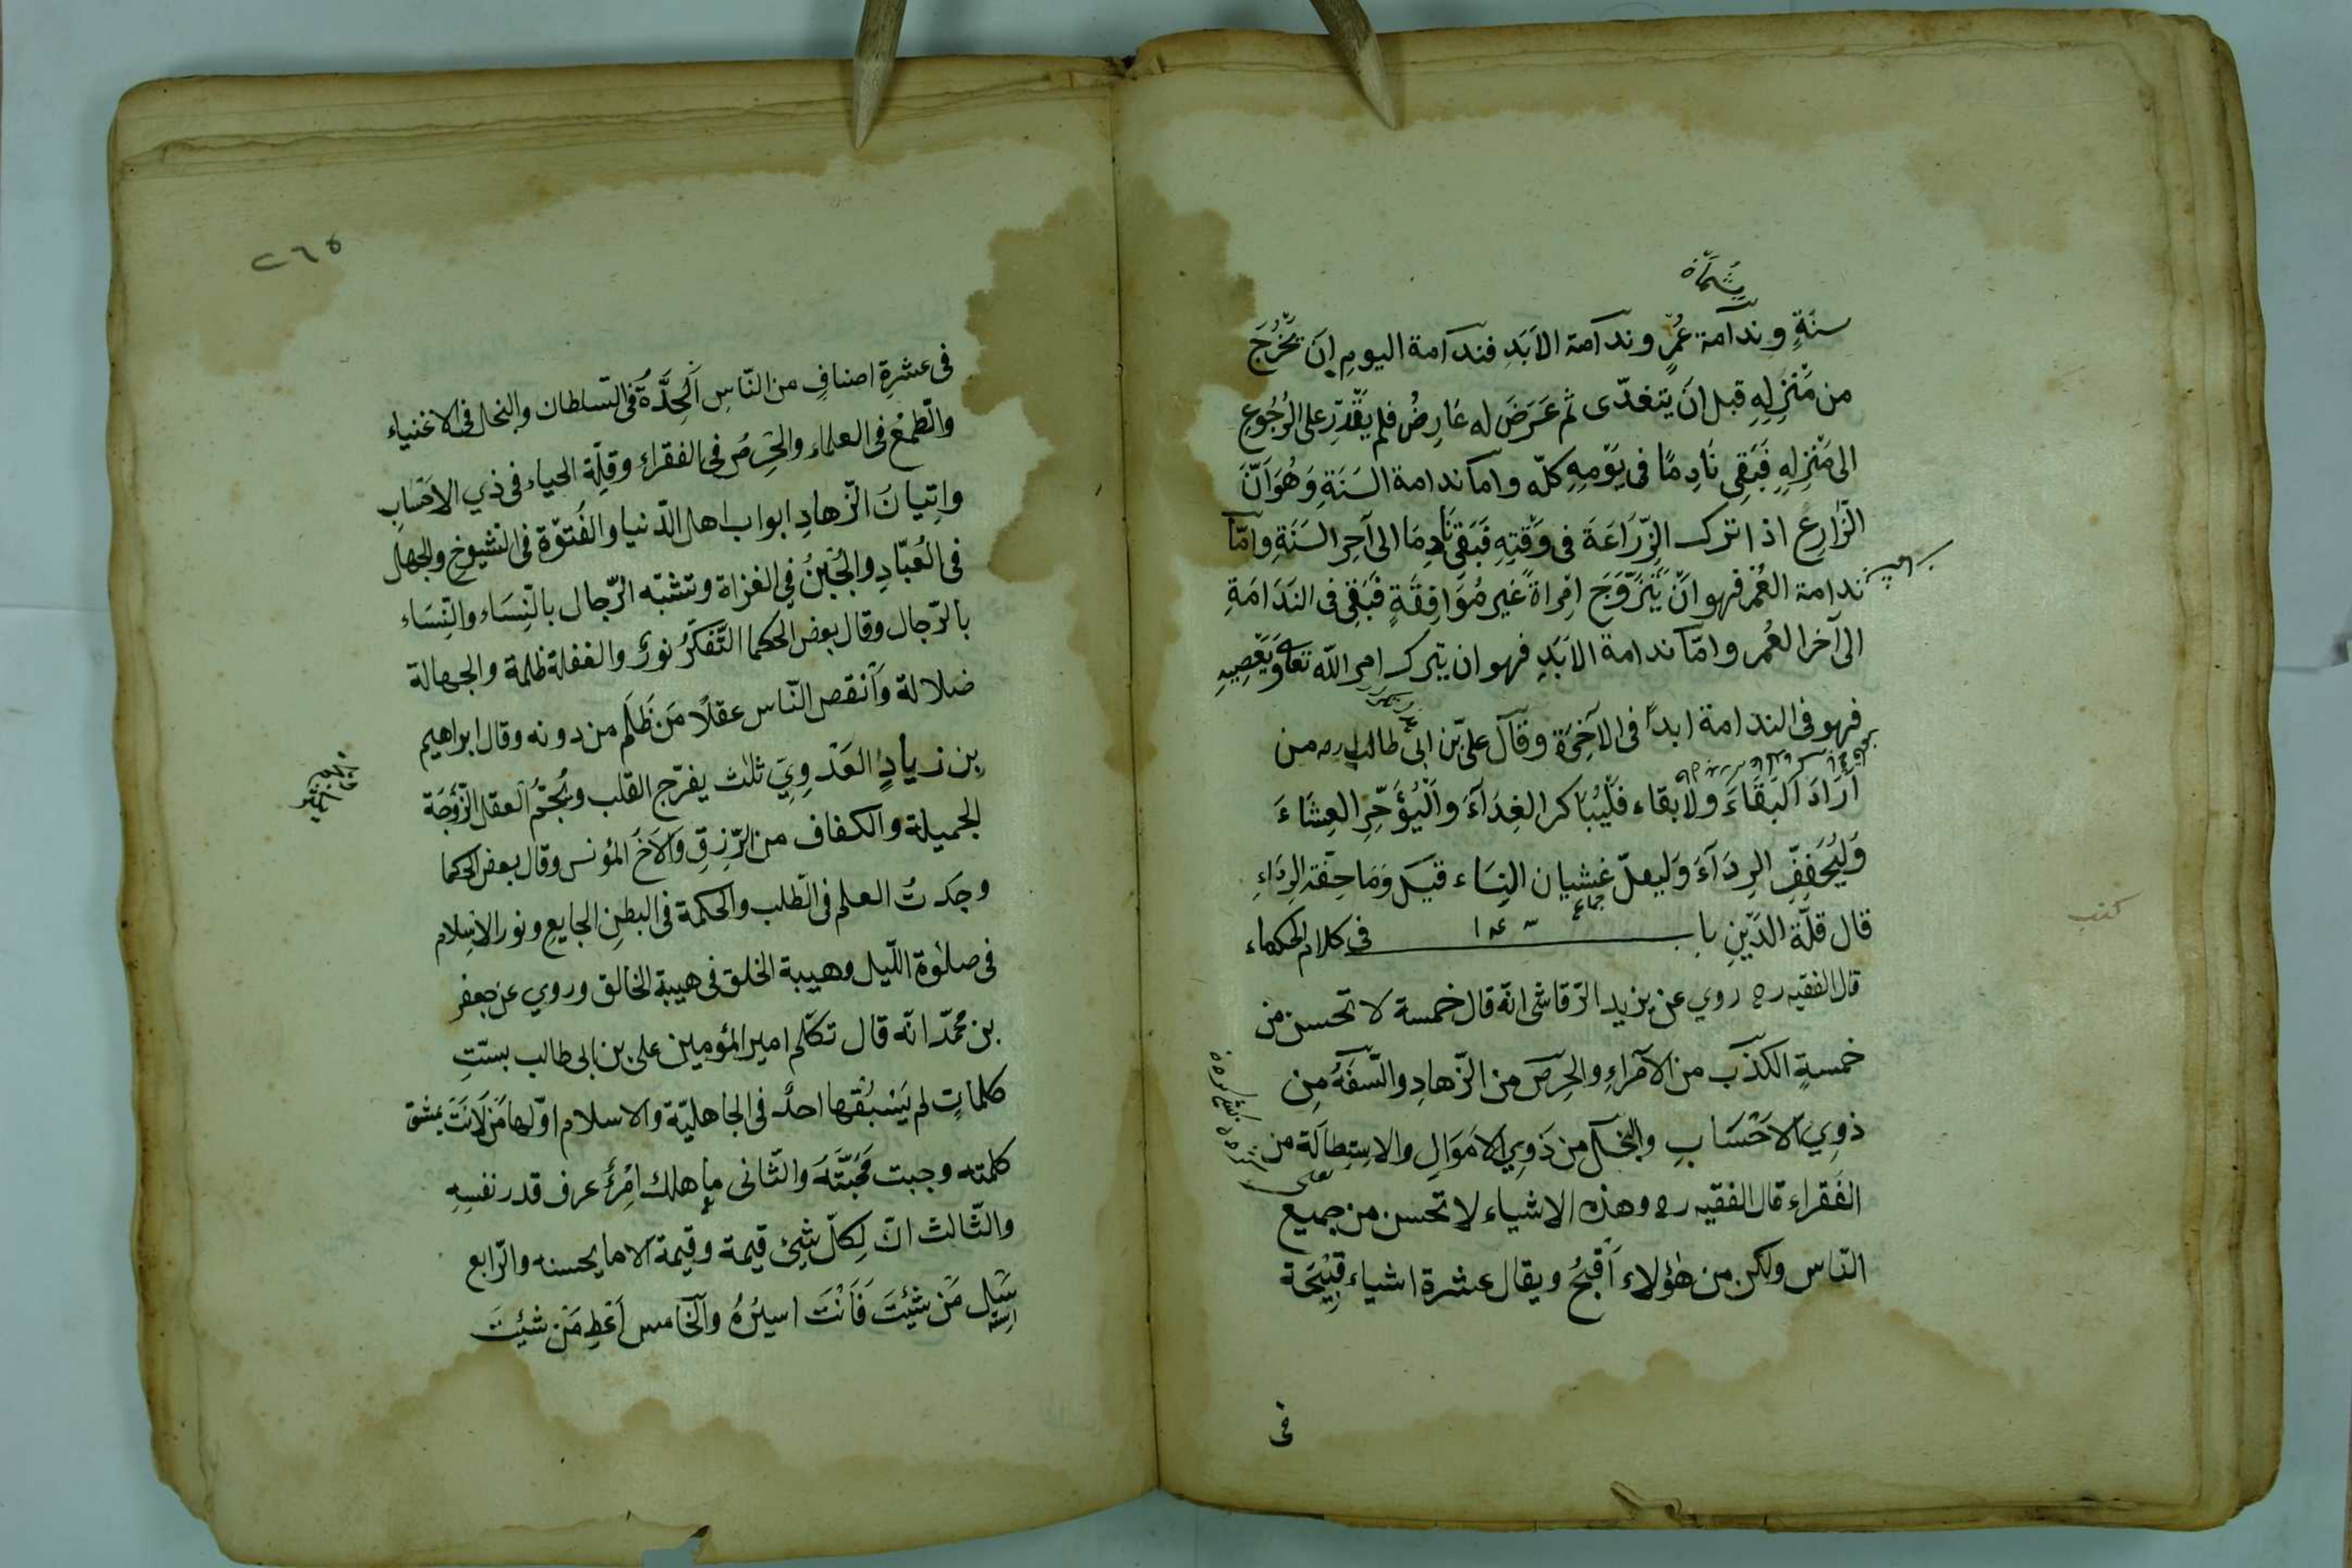 سنَةٍ وندآمة عُمُرٍ وندآمة الاَبَدِ فندآمة اليوم اِنَ يَخْرُجَ
من مَنْزِلِهِ قبل انَ يتغدّى ثم عَرَضَ له عَارِضُ فلم يَقْدِرْ على الرُجُوعِ
الى مَنْزِلِهِ فَبَقِى نَادِمًا فى يَوْمِهِ كلّه واماَ ندامة السَنَةِ وَهُوَ اَنَّ
الزَّارِعَ اذا ترك الزِّرَاعَةَ فى وَقْتِهِ فَبَقِىَ نَادِمَا الى آخِرِ السَنَةِ وامّاَ
ندامة العُمُر فهو انّ يَتَزَوَّجَ اِمْراةً غير مُوَافِقَةٍ فَبَقِى فى النَدَامَةِ
الى آخر العُمُر وامّاَ ندامة الاَبَدِ فهو ان يترك امر اللّه تعالى وَيَعْصِيهِ
فهو فى الندامة ابداً فى الآخِرَة وقآل علىّ بن ابى طالب رضه من
اَرَادَ اَلبَقَاءَ ولا بقاء فَلْيُبَاكر الغِدَآءَ واَلْيُؤَخِّرِ العِشَاءَ
وَلِيُخَفِفِّ الرِدَآءَ وَليقلّ غشيان النِسَاء قيلَ وَمَا خِفّة الرِدَاءِ
قال قلّة الدَيْنِ باب فى كلام الحكماء
قال الفقيه رح روي عن يزيد الرّقاشى انّه قال خمسة لا تحسن من
خمسةٍ الكذَب من الاَمَراءِ والحِرصَ من الزّهادِ والسَّفَهُ مِن
ذوِي الاَحْسَابِ والبخلَ من ذَوِي الاَموَالِ والاستِطالَة من
الفَقراء قال الفقيه رح وهذه الاشياء لا تحسن من جميع
النّاس ولكن من هؤلاء اَقْبحُ ويقال عشرة اشياء قَبِيْحَة
فى
٢٦٥
فى عشرةِ اصنافٍ من النّاسِ اَلْحِدَّةُ فى السّلطان والبخل فى الاغنياء
والطّمعُ فى العلماء والحِرصُ فى الفقراء وقِلّة الحياء فى ذي الاَحْسَابِ
واِتِيانُ الزّهادِ ابواب اهل الدّنيا والفُتوّة فى الشيوخ والجهلُ
فى العُبّادِ والجُبنُ فى الغزاة وتشبّه الرّجال بالنّسَاء والنّسَاء
بالرّجال وقال بعض الحكما التَّفَكرُّ نورٌ والغفلة ظلمة والجهالة
ضلالة واَنقص النّاس عقلاً مَن ظَلَم من دونه وقال ابراهيم
بن زيادٍ العَدَوِيّ ثلث يفرّج القلب ويُجمّ العقل الزّوْجَة
الجميلة والكفاف من الرّزقِ والاَخُ المؤنس وقال بعض الحكما
وجَدتُ العلم فى الطّلب والحكمة فى البطنِ الجايع ونور الاِسِلام
فى صلوٰة اللّيل وهيبة الخلق فى هيبة الخالق وروي عن جعفر
بن محمّد انّه قال تكلّم امير المؤمنين على بن ابى طالب بستّتِ
كلماتٍ لم يَسْبُقْها احدٌ فى الجاهليّة والاسلام اوّلها مَن لاَنَتَ
كلمته وجبت مَحَبَّتَهُ والثّانى ما هلك اِمْرُءٌ عرف قدر نفسِهِ
والثّالث انّ لِكلّ شيئ قيمة وقيمة الاما يحسنه والرّابع
سَئِل مَنْ شِئتَ فَاَنْتَ اسيرُهُ والخامس اَعْطِ مَنْ شئِتَ